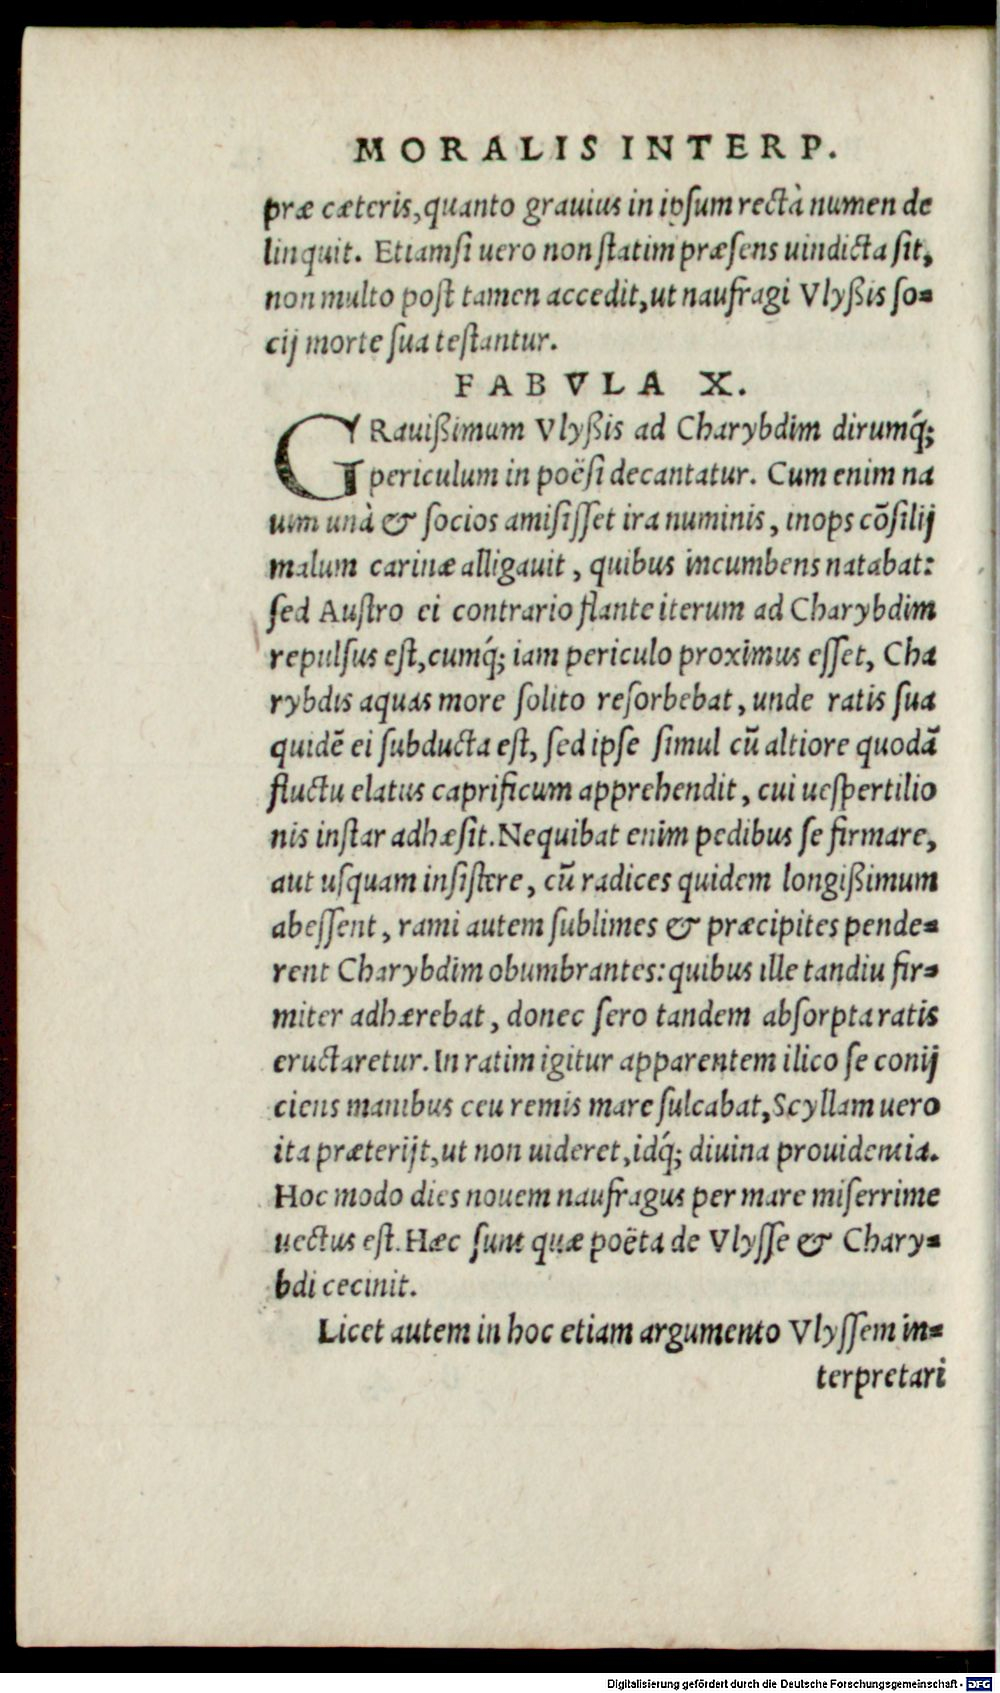 MORALIS INTERP.
præ cæteris, quanto grauius in ipsum rectà numen de
linquit. Etiamsi uero non statim præsens uindicta sit,
non multo post tamen accedit, ut naufragi Vlyßis so-
cij morte sua testantur.
FABVLA X.
GRauißimum Vlyßis ad Charybdim dirumq́;
periculum in poësi decantatur. Cum enim na
uim unà & socios amisisset ira numinis, inops cõsilij
malum carinæ alligauit, quibus incumbens natabat:
sed Austro ei contrario flante iterum ad Charybdim
repulsus est, cumq́; iam periculo proximus esset, Cha
rybdis aquas more solito resorbebat, unde ratis sua
quidẽ ei subducta est, sed ipse simul cũ altiore quodã
fluctu elatus caprificum apprehendit, cui uespertilio
nis instar adhæsit. Nequibat enim pedibus se firmare,
aut usquam insistere, cũ radices quidem longißimum
abessent, rami autem sublimes & præcipites pende-
rent Charybdim obumbrantes: quibus ille tandiu fir-
miter adhærebat, donec sero tandem absorpta ratis
eructaretur. In ratim igitur apparentem ilico se conij
ciens manibus ceu remis mare sulcabat, Scyllam uero
ita præterijt, ut non uideret, idq́; diuina prouidentia.
Hoc modo dies nouem naufragus per mare miserrime
uectus est. Hæc sunt quæ poëta de Vlysse & Chary-
bdi cecinit.
Licet autem in hoc etiam argumento Vlyssem in-
terpretari
Digitalisierung gefördert durch die Deutsche Forschungsgemeinschaft - DFG